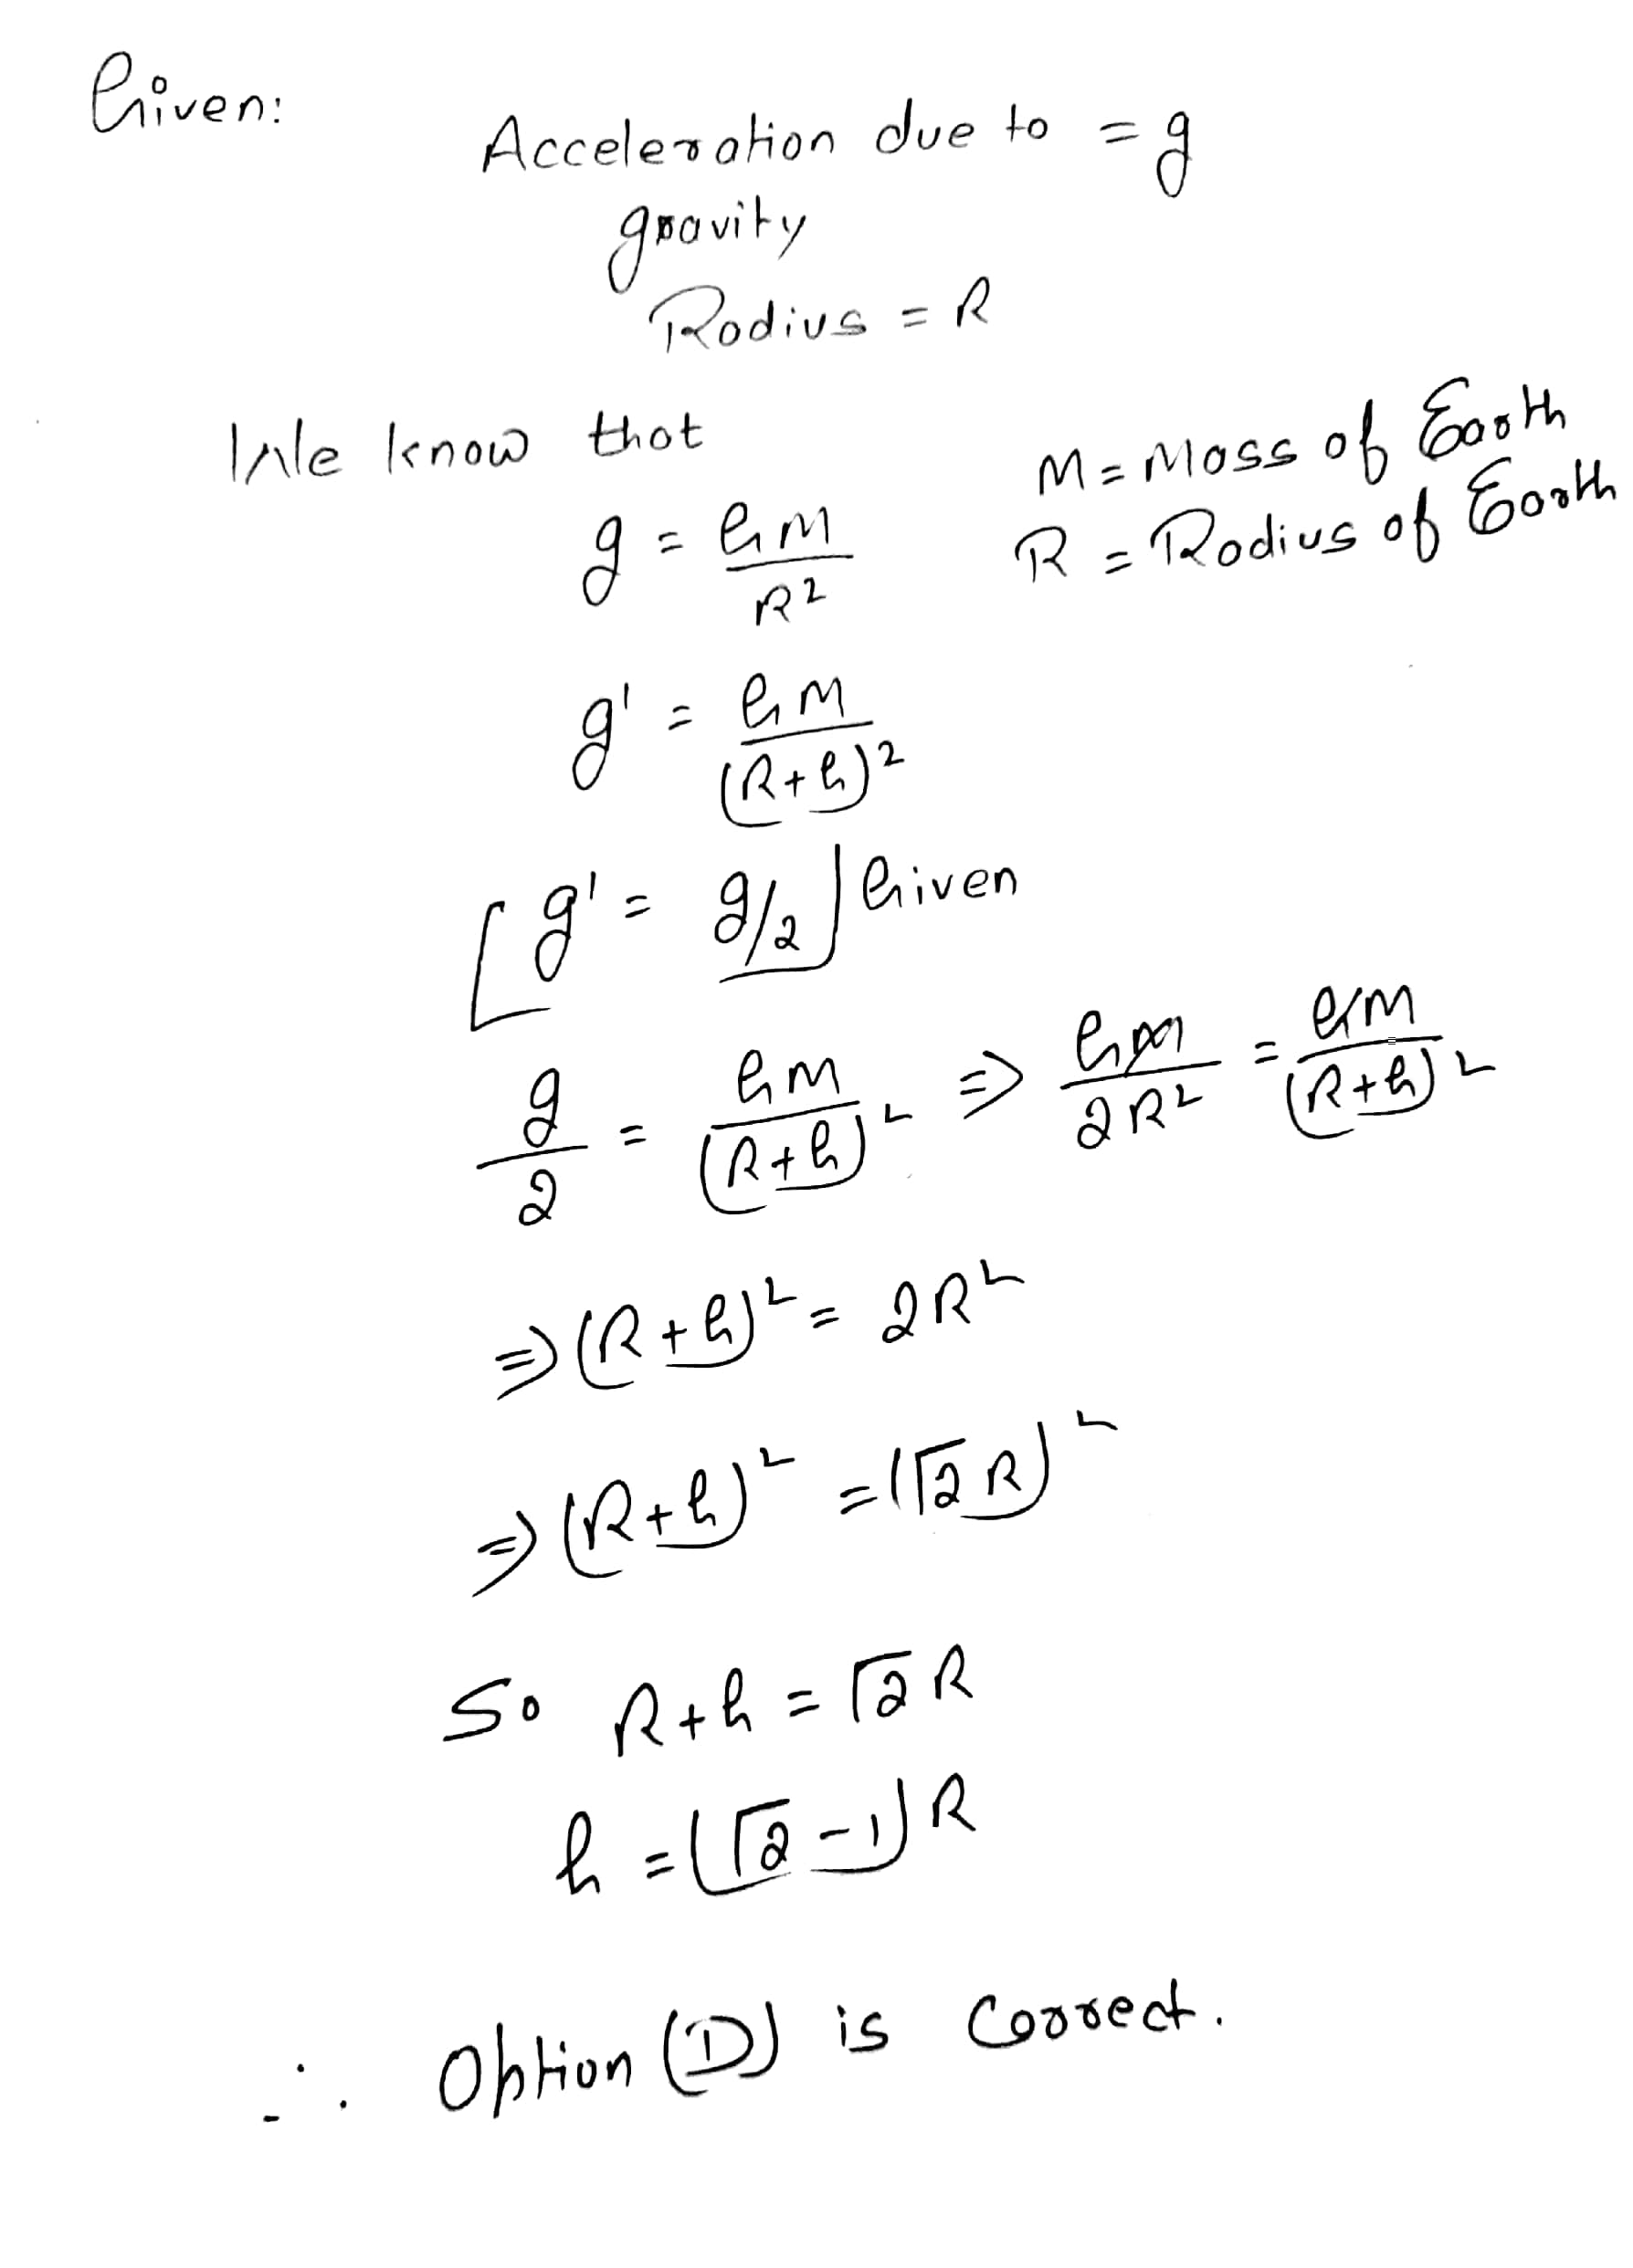 Given:
Acceleration due to = g
gravity
Radius = R
We know that
M = Mass of Earth
R = Radius of Earth
g = GM/R²
g' = GM/(R+h)²
[g' = g/2] Given
g/2 = GM/(R+h)² ⇒ GM/2R² = GM/(R+h)²
⇒ (R+h)² = 2R²
⇒ (R+h)² = (√2R)²
So R+h = √2R
h = (√2-1)R
∴ Option (D) is Correct.